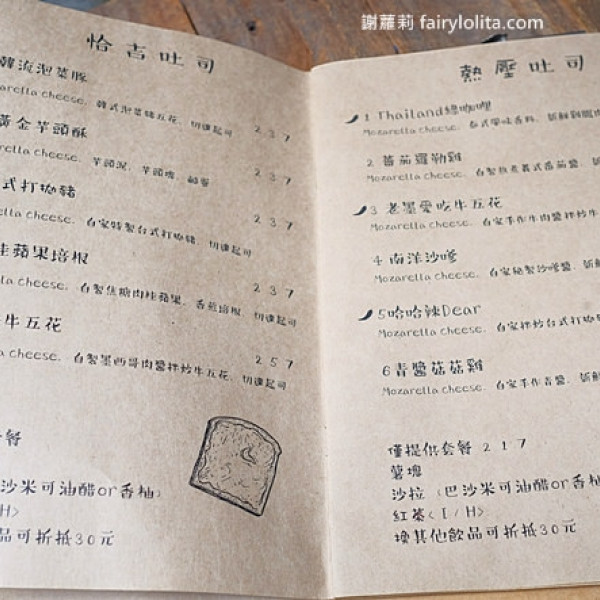 謝蘿莉 fairylolita.com
恰吉吐司
韓流泡菜豚
arella cheese、韓式泡菜豬五花、切達起司 237
黃金芋頭酥
arella cheese、芋頭泥、芋頭塊、鹹蛋 237
式打拋豬
ella cheese、自家特製台式打拋豬、切達起司 237
桂蘋果培根
la cheese、自製焦糖肉桂蘋果、香煎培根、切達起司 237
牛五花
a cheese、自製墨西哥肉醬拌炒牛五花、切達起司 257
餐
沙米可油醋or香柚
/H>
品可折抵30元
熱壓吐司
1 Thailand綠咖哩
Mozarella cheese、泰式風味香料、新鮮雞腿肉
2 蕃茄羅勒雞
Mozarella cheese、自製熬煮義式蕃茄醬、新
3 老墨愛吃牛五花
Mozarella cheese、自家手作牛肉醬拌炒牛
4 南洋沙嗲
Mozarella cheese、自家秘製沙嗲醬、新
5哈哈辣Dear
Mozarella cheese、自家拌炒台式打拋
6青醬菇菇雞
Mozarella cheese、自家手作青醬、新
僅提供套餐 217
薯塊
沙拉 (巴沙米可油醋or香
紅茶<I/H>
換其他飲品可折抵30元